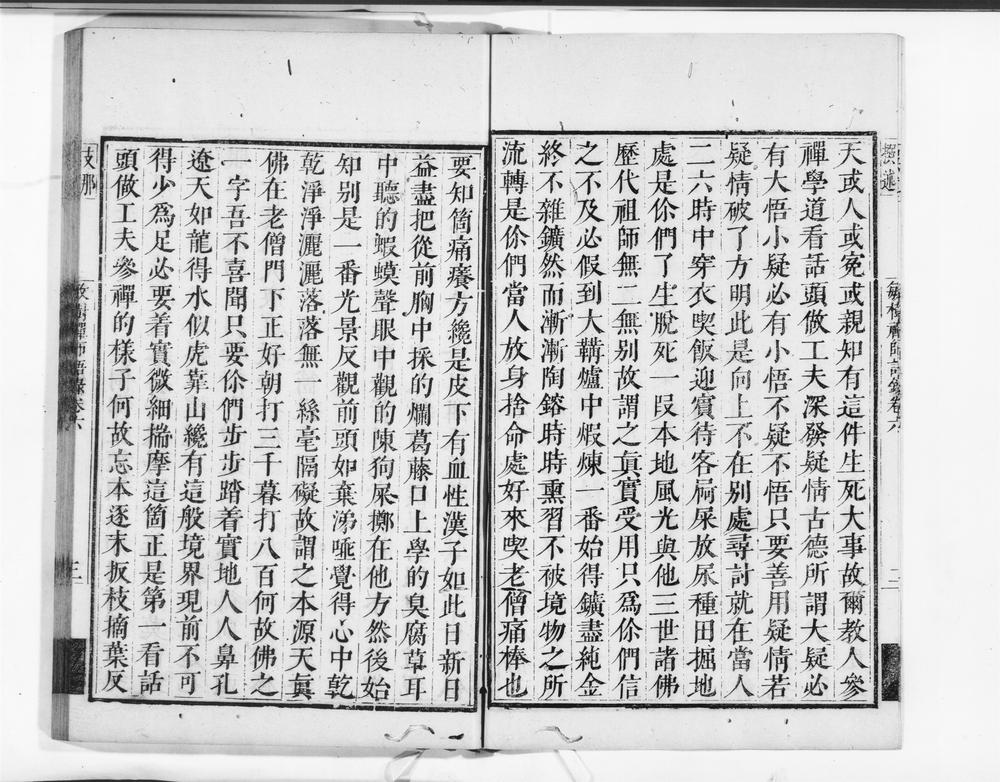 天或人或寃或親知有這件生死大事故爾教人參
禪學道看話頭做工夫深發疑情古德所謂大疑必
有大悟小疑必有小悟不疑不悟只要善用疑情若
疑情破了方明此是向上不在別處尋討就在當人
二六時中穿衣喫飯迎賓待客屙屎放尿種田掘地
處是你們了生脫死一叚本地風光與他三世諸佛
歷代祖師無二無别故謂之眞實受用只爲你們信
之不及必假到大鞲爐中煆煉一番始得鑛盡純金
終不雜鑛然而漸漸陶鎔時時熏習不被境物之所
流轉是你們當人放身捨命處好來喫老僧痛棒也
要知箇痛癢方纔是皮下有血性漢子如此日新日
益盡把從前胸中採的爛葛藤口上學的臭腐草耳
中聽的蝦蟆聲眼中觀的陳狗屎擲在他方然後始
知别是一番光景反觀前頭如棄涕唾覺得心中乾
乾淨淨灑灑落落無一絲毫隔礙故謂之本源天眞
佛在老僧門下正好朝打三千暮打八百何故佛之
一字吾不喜聞只要你們步步踏着實地人人鼻孔
遼天如龍得水似虎靠山纔有這般境界現前不可
得少爲足必要着實微細揣摩這箇正是第一看話
頭做工夫參禪的樣子何故忘本逐末扳枝摘葉反